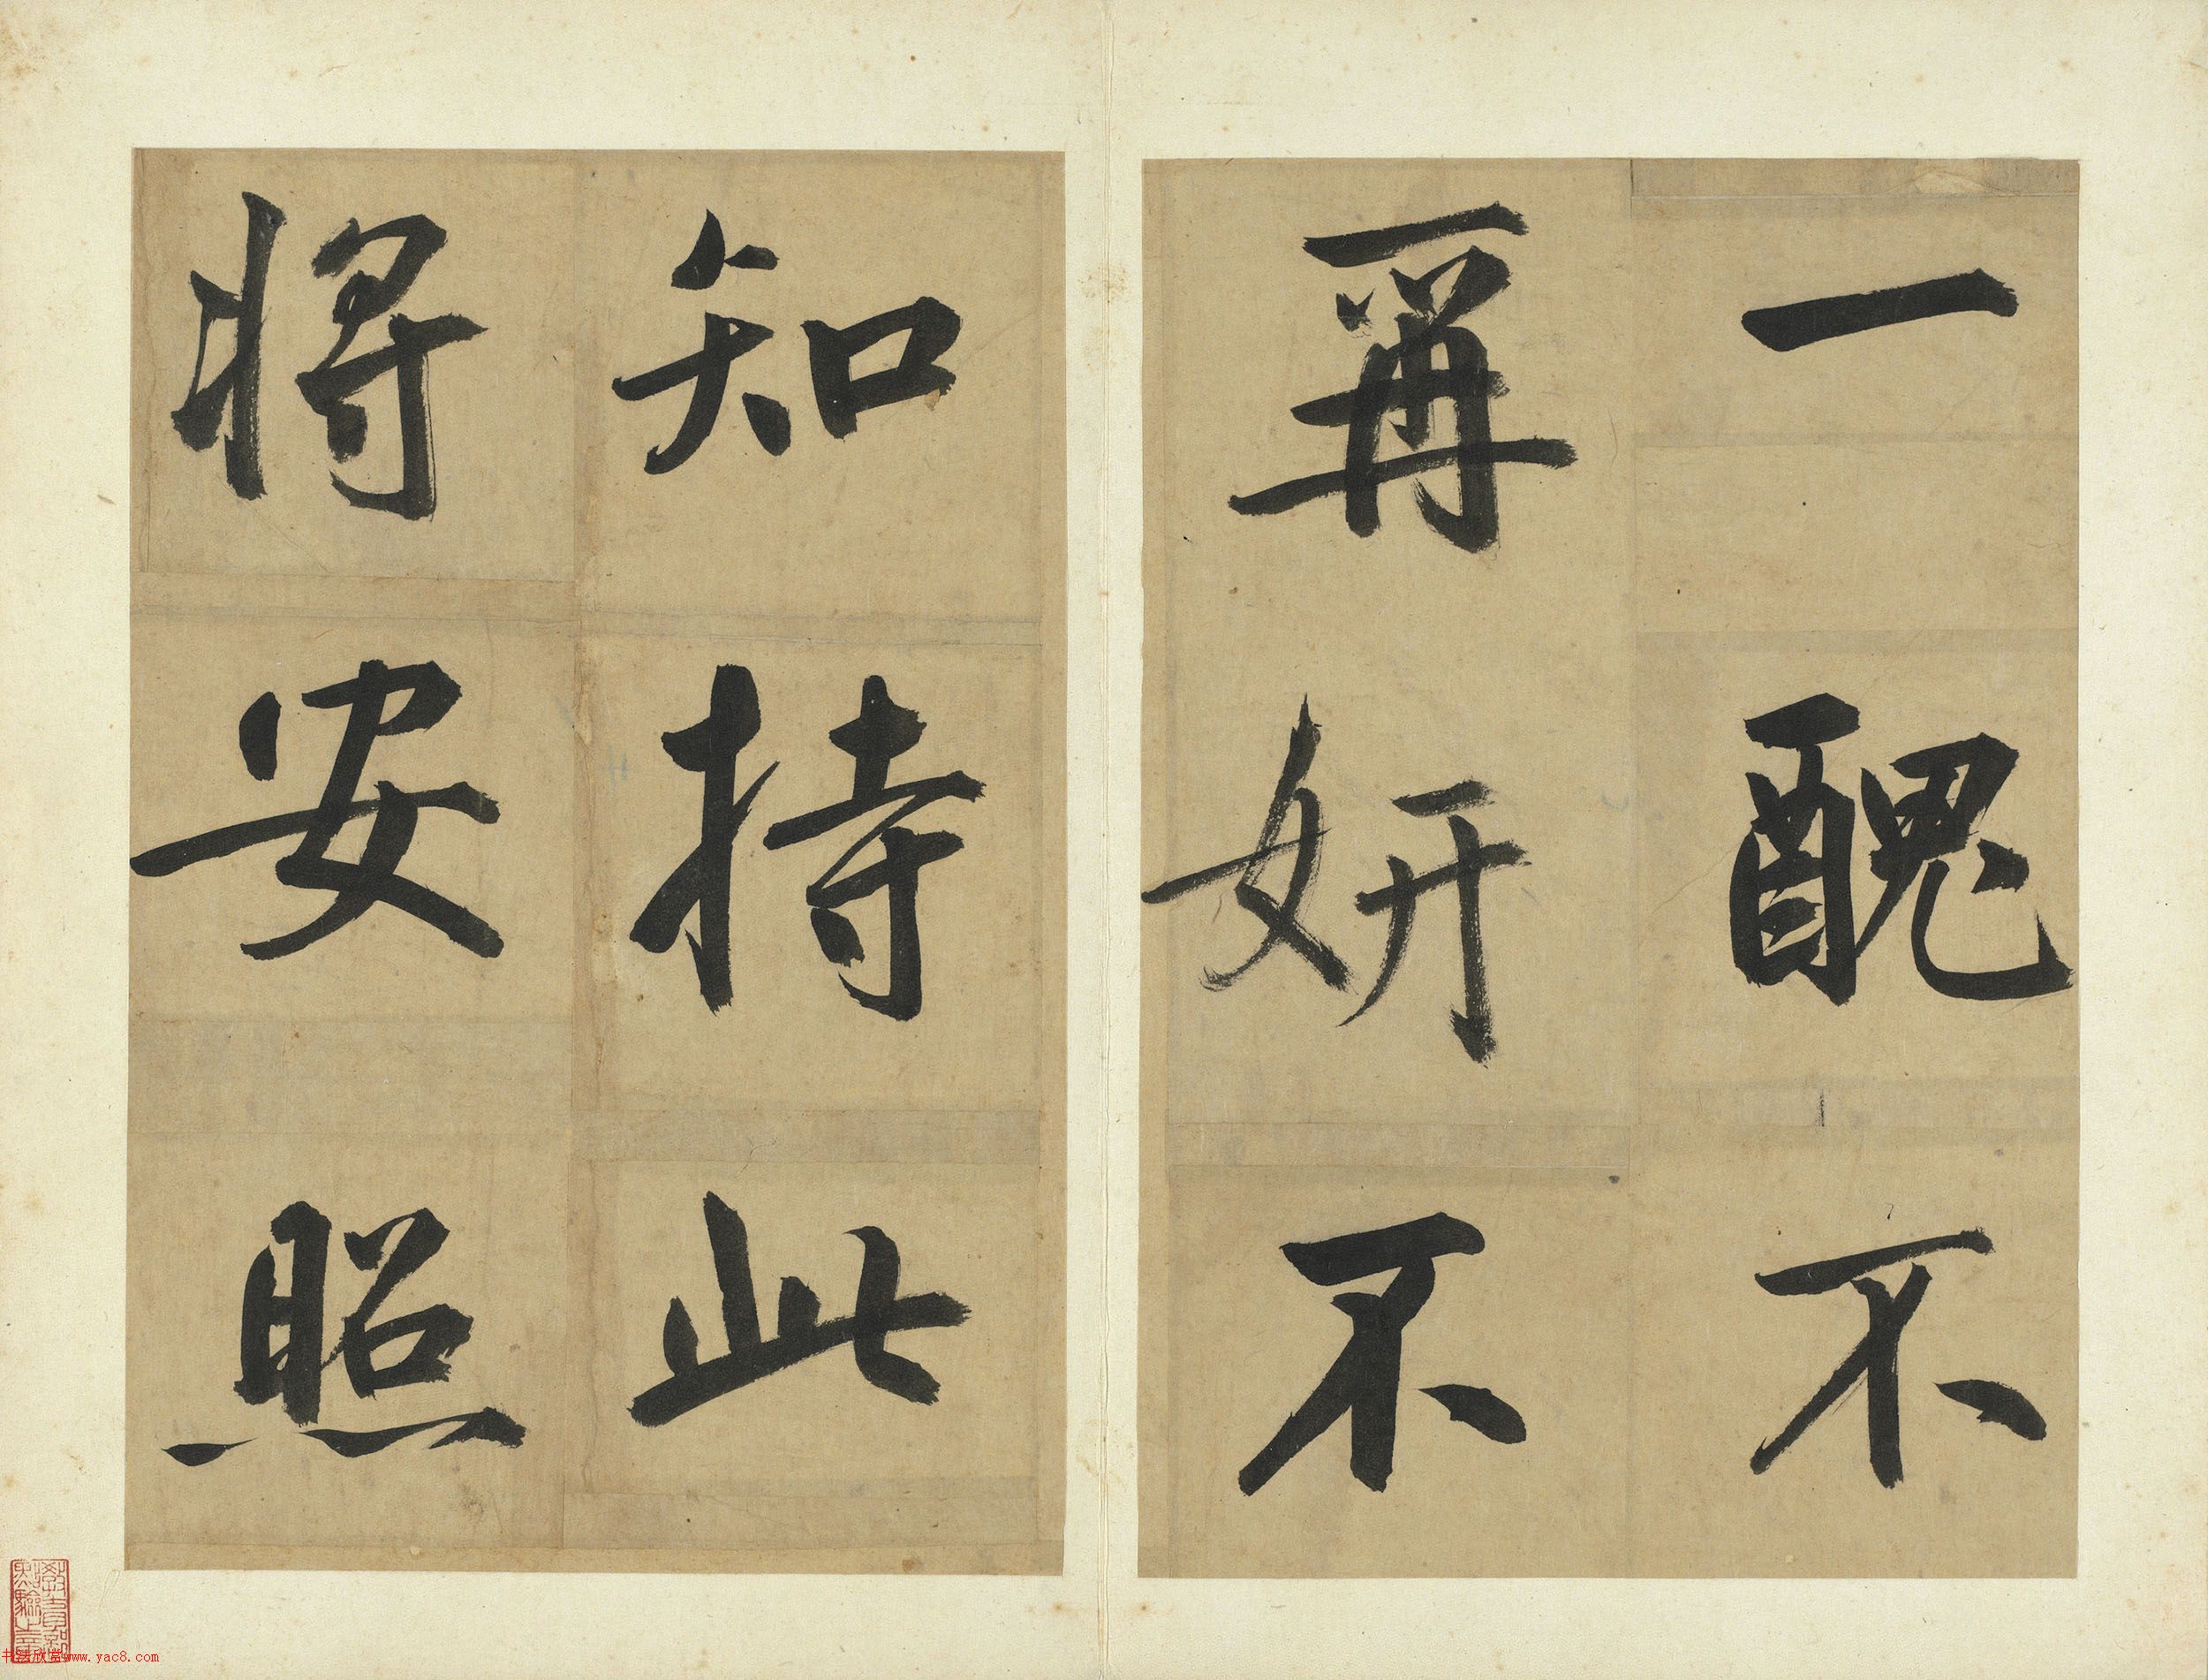 一醜不
再妍不
知持此
將安照
书法欣赏www.yac8.com